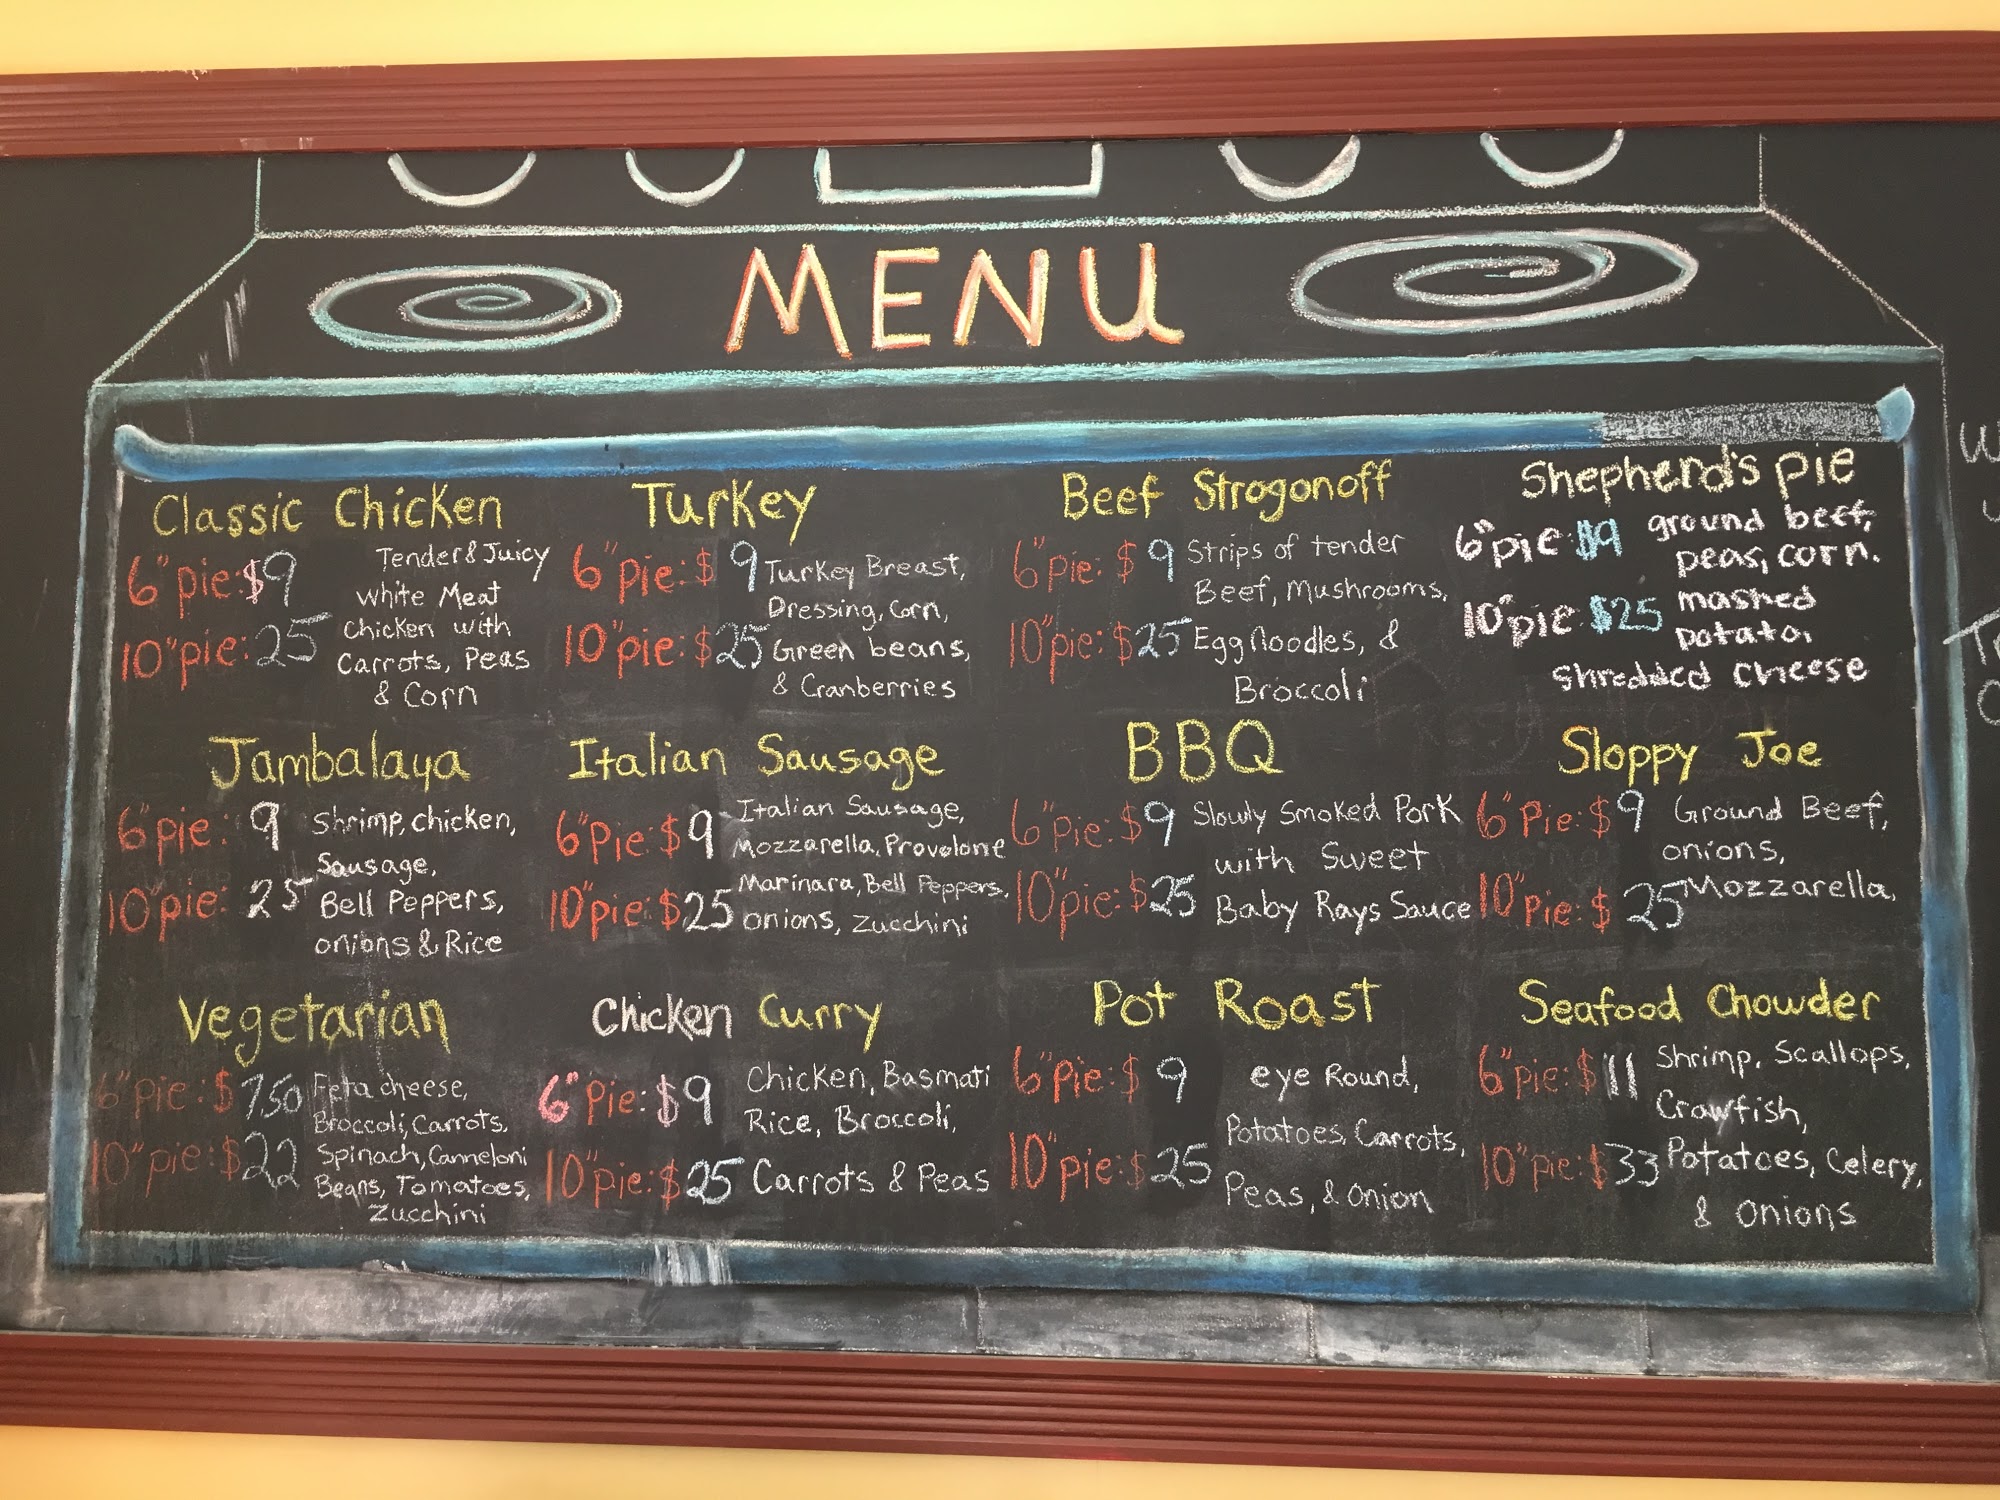 MENU
Classic Chicken
6" pie: $9
10" pie: 25
Tender & Juicy
white Meat
Chicken with
Carrots, Peas
& Corn
Turkey
6" pie: $9
10" pie: $25
Turkey Breast,
Dressing, Corn,
Green beans,
& Cranberries
Beef Strogonoff
6" pie: $9
10" pie: $25
Strips of tender
Beef, Mushrooms,
Egg Noodles, &
Broccoli
Shepherd's pie
6" pie: $9
10" pie $25
ground beef,
peas, corn.
mashed
potato,
Shredded Cheese
Jambalaya
6" pie: 9
10" pie: 25
Shrimp, chicken,
Sausage,
Bell Peppers,
onions & Rice
Italian Sausage
6" Pie: $9
10" pie: $25
Italian Sausage,
Mozzarella, Provolone
Marinara, Bell Peppers,
onions, Zucchini
BBQ
6" pie: $9
10" pie: $25
Slowly Smoked Pork
with Sweet
Baby Rays Sauce
Sloppy Joe
6" Pie: $9
10" Pie: $25
Ground Beef,
onions,
Mozzarella,
Vegetarian
6" pie: $750
10" pie: $22
Feta cheese,
Broccoli, Carrots,
Spinach, Canneloni
Beans, Tomatoes,
Zucchini
Chicken Curry
6" Pie: $9
10" pie: $25
Chicken, Basmati
Rice, Broccoli,
Carrots & Peas
Pot Roast
6" Pie: $9
10" pie: $25
eye Round,
Potatoes, Carrots,
Peas, & Onion
Seafood Chowder
6" Pie: $11
10" pie: $33
Shrimp, Scallops,
Crawfish,
Potatoes, Celery,
& Onions